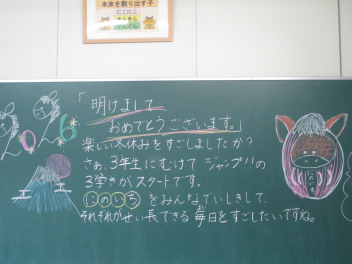 未来を創り出す子
にこにこ
「明けまして
おめでとうございます。」
楽しい冬休みをすごしましたか?
さぁ、3年生にむけて ジャンプ!!の
3学きがスタートです。
にのいちをみんなでいしきして、
それぞれがせい長できる毎日をすごしたいですね。
にのいち